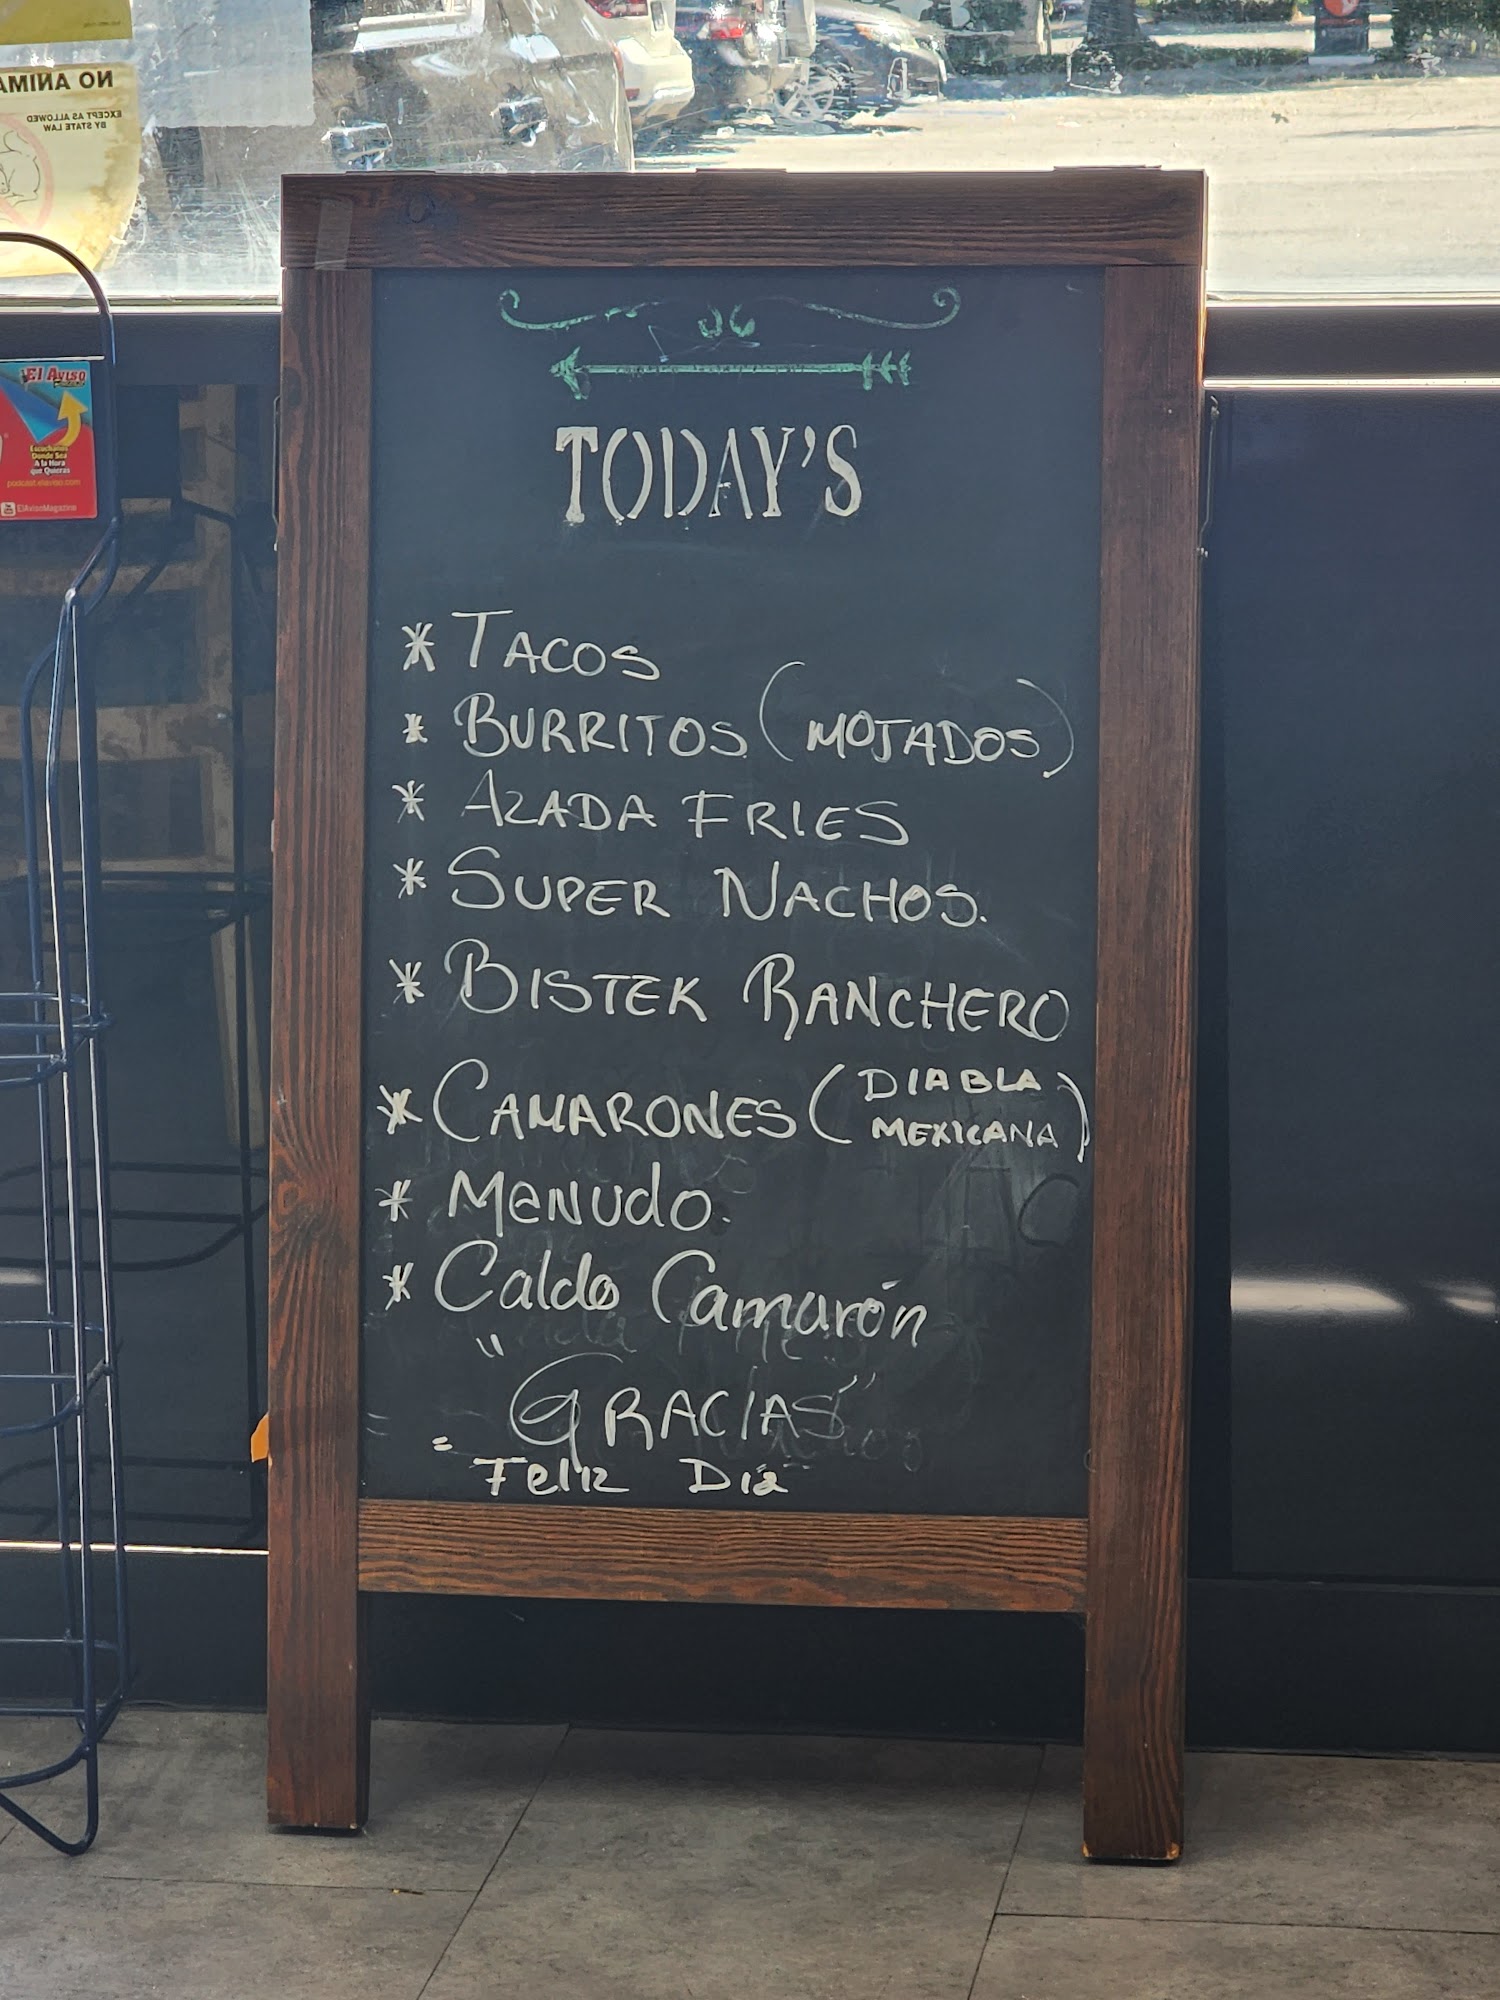 NO ANIMA
EXCEPT AS ALLOWED
BY STATE LAW
El Aviso
Escuchanos
Donde Sea
A la Hora
que Quieras
podcast.elaviso.com
ElAvisoMagazine
TODAY'S
* TACOS
* BURRITOS (MOJADOS)
* AZADA FRIES
* SUPER NACHOS.
* BISTEK RANCHERO
* CAMARONES (DIABLA
MEXICANA)
* MENUDO.
* Caldo Camarón
"GRACIAS"
= Feliz Día